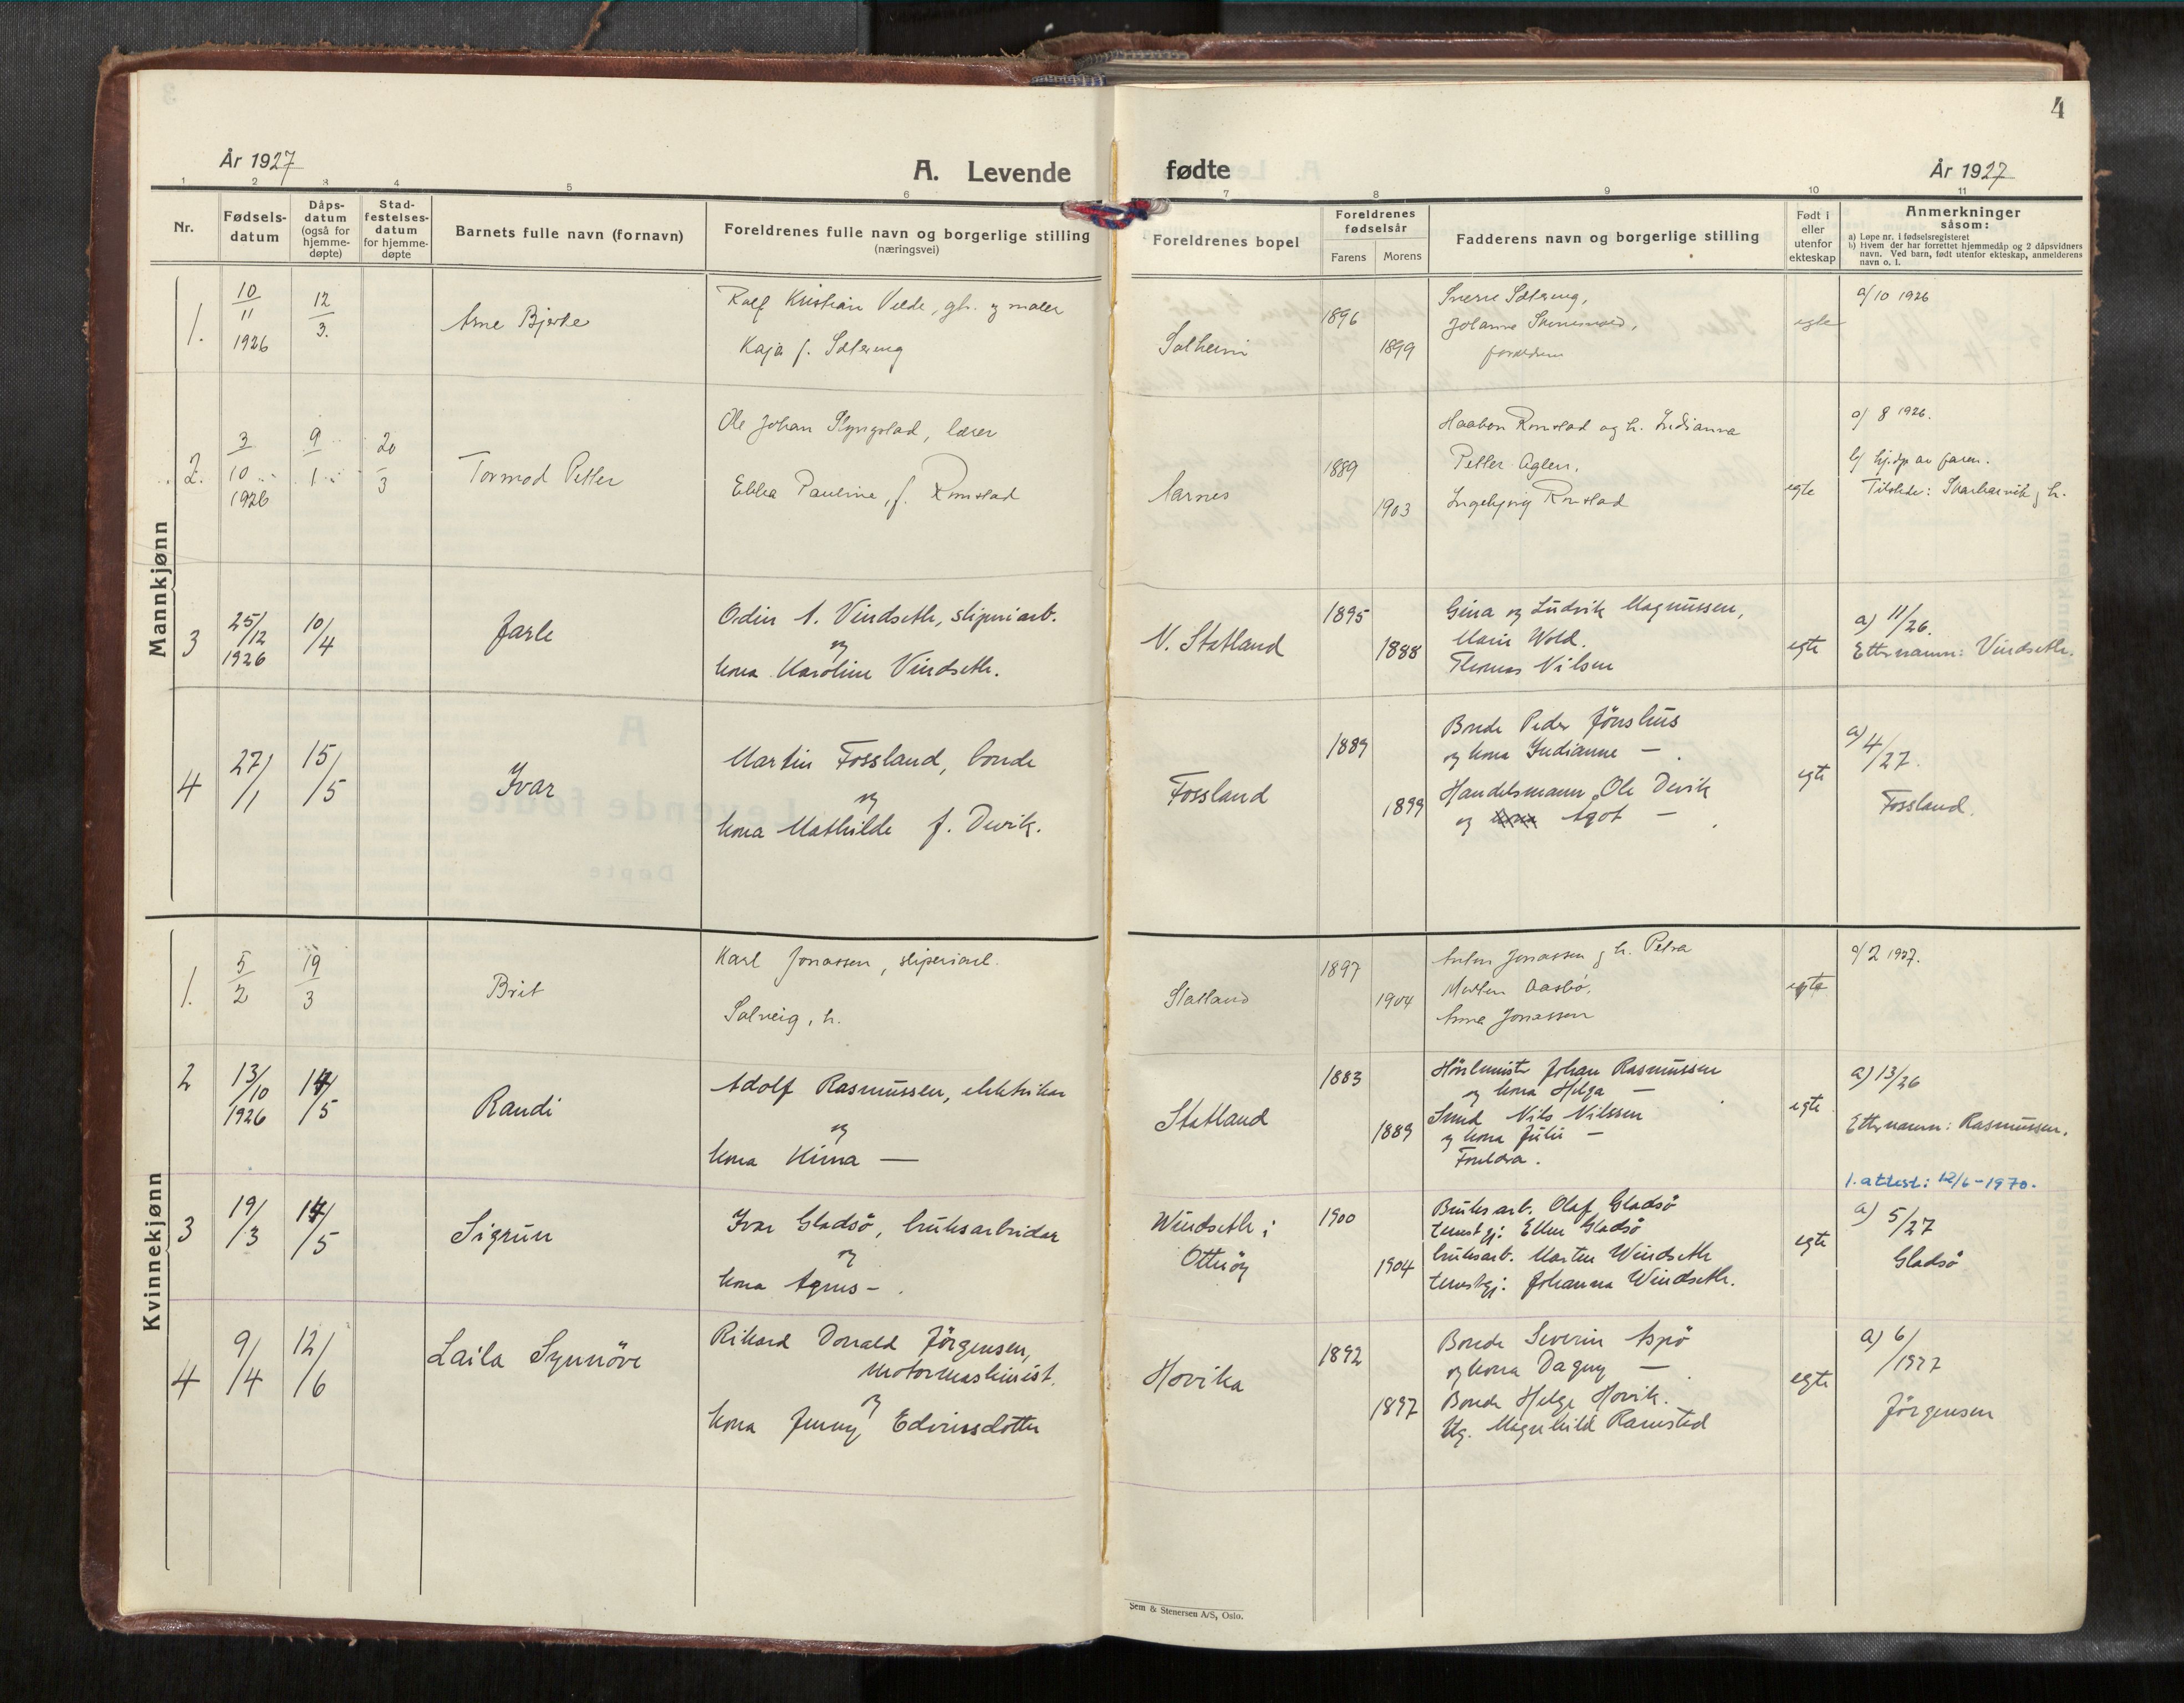 4
År 1927
A. Levende fødte
År 1927
1 2 3 4 5 6 7 8 9 10 11
Nr.
Fødsels-
datum
Dåps-
datum
(også for
hjemme-
døpte)
Stad-
festelses-
datum
for hjemme-
døpte
Barnets fulle navn (fornavn)
Foreldrenes fulle navn og borgerlige stilling
(næringsvei)
Foreldrenes bopel
Foreldrenes
fødselsår
Farens Morens
Fadderens navn og borgerlige stilling
Født i
eller
utenfor
ekteskap
Anmerkninger
såsom:
a) Løpe nr. i fødselsregisteret
b) Hvem der har forrettet hjemmedåp og 2 dåpsvidners
navn. Ved barn, født utenfor ekteskap, anmelderens
navn o. l.
Mannkjønn
1.
10/11
1926
12/3.
Arne Bjerke
Rolf Kristian Velde, gbr. og maler
Kaja f. Sætereng
Solheim
1896
1899
Sverre Sætereng,
Johanne
foreldrene
egte
a/10 1926
2.
3/10
1926
9/1
20/3
Tormod Petter
Ole Johan Slyngstad, lærer
Ebba Pauline, f. Romstad
Aarnes
1889
1903
Haakon Romstad og h. Indianna
Petter Aglen.
Ingebjørg Romstad
egte
a/ 8 1926.
b/ hj.dp av faren.
Tilstede: h.
3
25/12
1926
10/4
Jarle
Odin A. Vindseth, sliperiarb.
og
kona Karoline Vindseth.
N. Statland
1895
1888
Gina og Ludvik Magnussen,
Marie Wold.
Thomas Nilsen
egte
a) 11/26.
Etternamn: Vindseth.
4
27/1
15/5
Ivar
Martin Fossland, bonde
og
kona Mathilde f. Devik.
Fossland
1889
1899
Bonde Peder Jönshus
og kona Indianne —.
Handelsmann Ole Devik
og kona Agot —.
egte
a) 4/27.
Fossland.
Kvinnekjønn
1.
5/2
19/3
Brit
Karl Jonassen, sliperiarb.
Solveig, h.
Statland
1897
1904
Anton Jonassen og h. Petra
Morten Aasbø,
Anna Jonassen
egte
a/ 2 1927.
2
13/10
1926
14/5
Randi
Adolf Rasmussen, elektriker
og
kona Kima —
Statland
1883
1889
Johan Rasmussen
og kona Helga —
Smed Nils Nilssen
og kona Julie —
Foreldra.
egte
a) 13/26
Etternamn: Rasmussen.
1. attest: 12/6-1970.
3
19/3
14/5
Sigrun
Ivar Gladsö, bruksarbeidar
og
kona Agnes —.
Windseth i
Otteröy
1900
1904
Bruksarb. Olaf Gladsö
tenestgj: Ellen Gladsö
bruksarb. Morten Windseth
tenestgj: Johanna Windseth.
egte
a) 5/27
Gladsö
4
9/4
12/6
Laila Synnöve
Rikard Donald Jörgensen,
motormaskinist.
og
kona Jenny Edvinsdotter
Hovika
1892
1897
Bonde Severin Aspö
og kona Dagny —.
Bonde Helge Hovik.
Ug. Magnhild Ramstad
egte
a) 6/1927
Jörgensen
Sem & Stenersen A/S, Oslo.